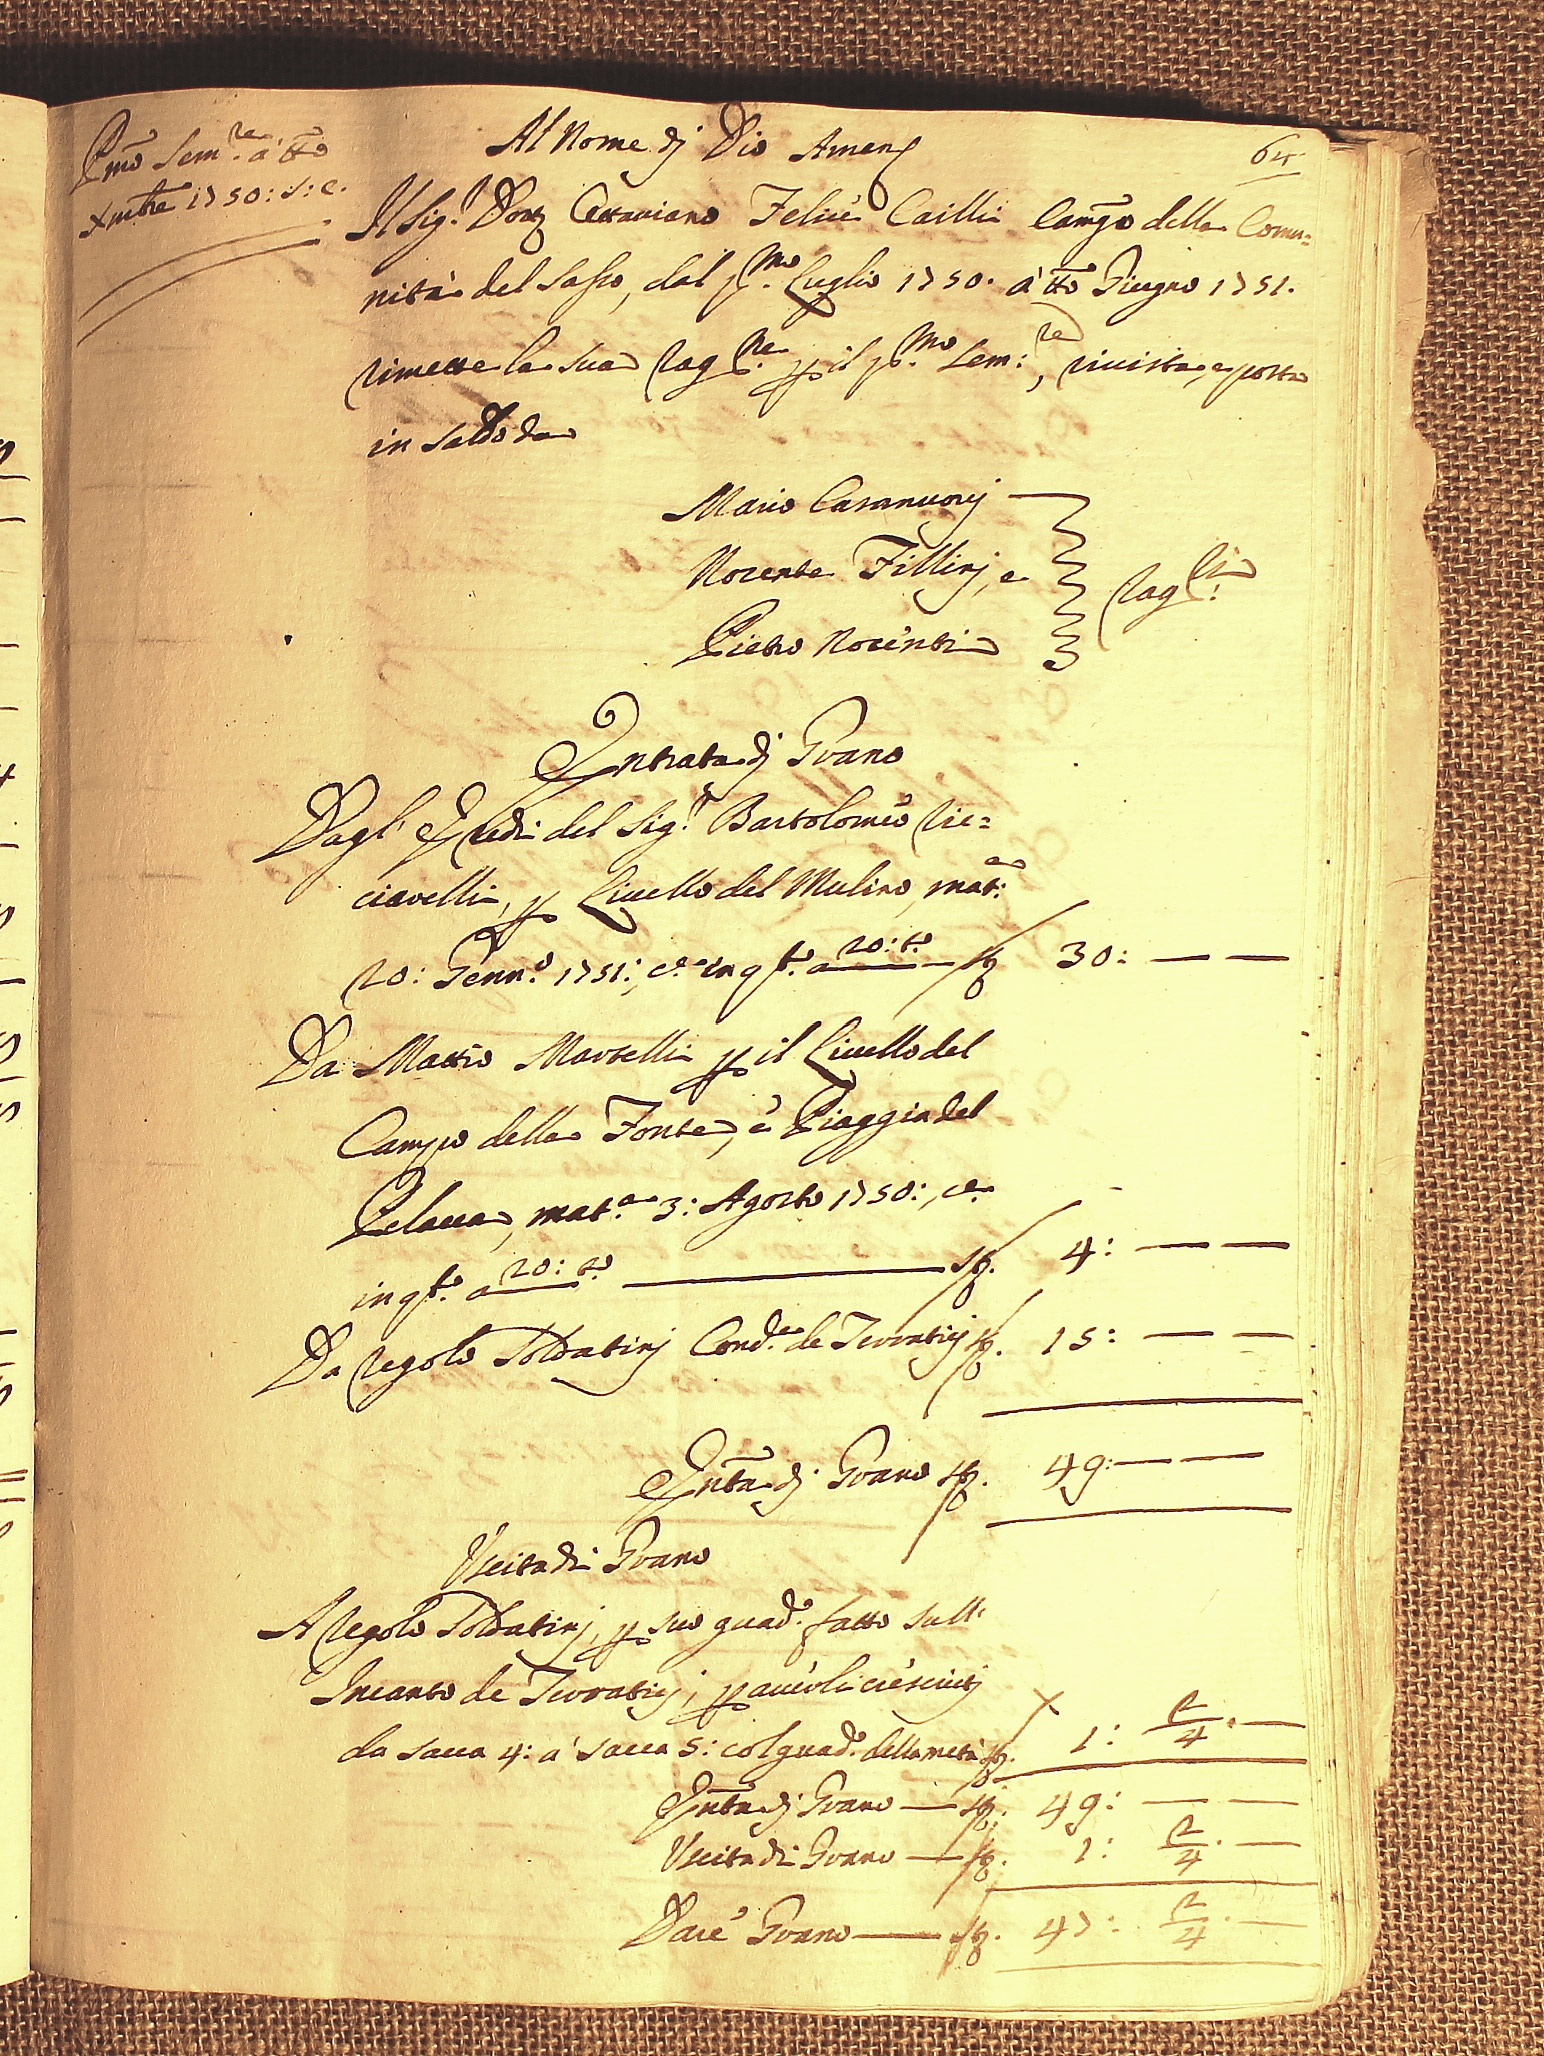 Pmo Sem.re a tto
Xmbre 1750: S: C.
Al Nome dj Dio Amen
64
Il Sig.r Dott. Ottaviano Felice Cailli Camgo della Comu=
nità del Sasso, dal p.mo Luglio 1750. à tto Giugno 1751.
rimette la sua rag.ne p il p.mo Sem:re, rivista, e posta
in saldo da
Mario Casanuovj
Nocente Fillinj, e
Pietro Nocenti
rag.ri
Intrata dj Grano
Dagl' Eredi del Sig.r Bartolomeo Ric=
ciarelli, p Livello del Mulino, mat:a
20: Genn.o 1751:, e in q.to a 20: to st 30: — —
Da Mattio Martelli p il Livello del
Campo della Fonte, e Piaggia del
Pelacca, mat.a 3: Agosto 1750:, e
in q.to a 20: to — st. 4: — —
Da Regolo Soldatinj Cond.e de Terraticj st. 15: — —
Intta dj Grano st. 49: — —
Uscita di Grano
A Regolo Soldatinj, p suo guad.o fatto sull'
Incanto de Terraticj, p averli cresciuti
da sacca 4: a sacca 5: col guad.o della metà st. 1: 2/4. —
Intta dj Grano — st. 49: — —
Uscita di Grano — st. 1: 2/4. —
Dare Grano — st. 47: 2/4. —